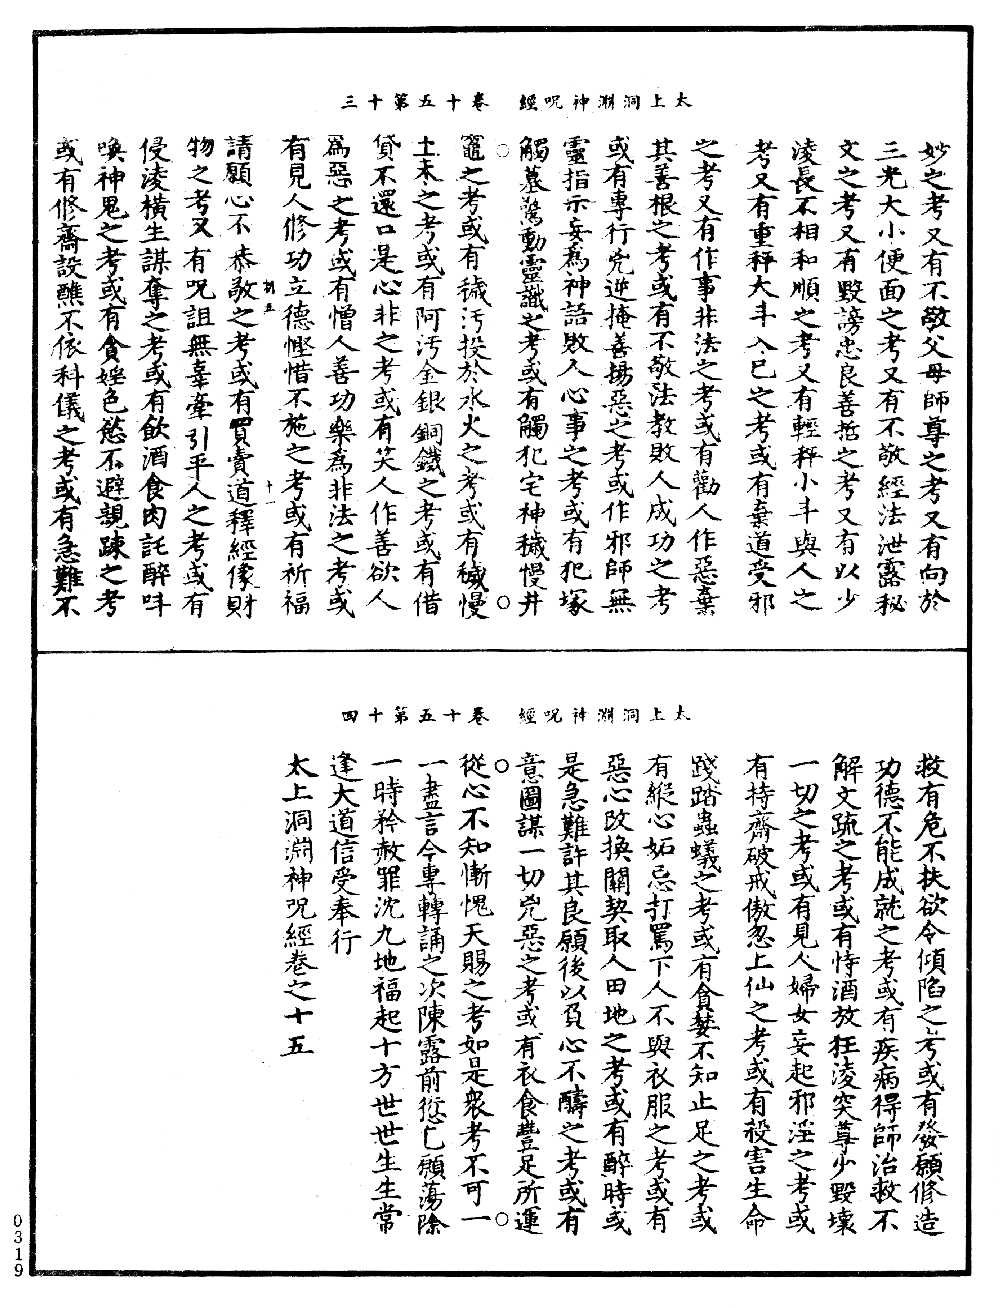 太上洞淵神呪經　卷十五第十三
妙之考又有不敬父母師尊之考又有向於
三光大小便面之考又有不敬經法泄露秘
文之考又有毀謗忠良善哲之考又有以少
凌長不相和順之考又有輕秤小斗與人之
考又有重秤大斗入已之考或有棄道受邪
之考又有作事非法之考或有勸人作惡棄
其善根之考或有不敬法教敗人成功之考
或有專行兇逆掩善揚惡之考或作邪師無
靈指示妄為神語敗人心事之考或有犯塚
觸墓驚動靈讖之考或有觸犯宅神穢慢井
竈之考或有穢汚投於水火之考或有穢慢
土木之考或有阿汚金銀銅鐵之考或有借
貸不還口是心非之考或有笑人作善欲人
為惡之考或有憎人善功樂為非法之考或
有見人修功立德慳惜不施之考或有祈福
十一
請願心不恭敬之考或有買賣道釋經像財
物之考又有呪詛無辜牽引平人之考或有
侵凌橫生謀奪之考或有飲酒食肉託醉呌
喚神鬼之考或有貪婬色慾不避親踈之考
或有修齋設醮不依科儀之考或有急難不
太上洞淵神呪經　卷十五第十四
救有危不扶欲令傾陷之考或有發願修造
功德不能成就之考或有疾病得師治救不
解文疏之考或有恃酒放狂凌突尊少毀壞
一切之考或有見人婦女妄起邪淫之考或
有持齋破戒傲忽上仙之考或有殺害生命
踐踏蟲蟻之考或有貪婪不知止足之考或
有縱心妬忌打罵下人不與衣服之考或有
惡心改換關契取人田地之考或有醉時或
是急難許其良願後以負心不醻之考或有
意圖謀一切兇惡之考或有衣食豐足所運
從心不知慚愧天賜之考如是衆考不可一
一盡言今專轉誦之次陳露前愆乞願蕩除
一時矜赦罪沈九地福起十方世世生生常
逢大道信受奉行
太上洞淵神呪經卷之十五
0319